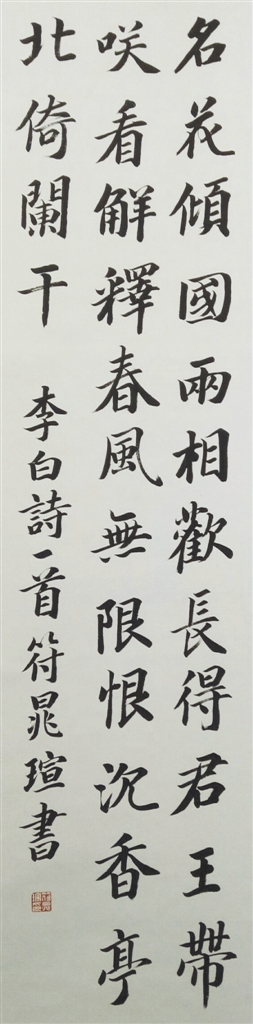 名花傾國兩相歡長得君王帶
咲看解釋春風無限恨沉香亭
北倚闌干
李白詩一首符晁瑄書